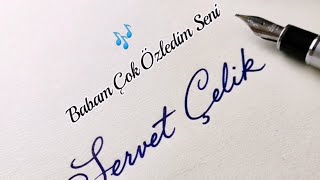 Babam Çok Özledim Seni
Servet Çelik